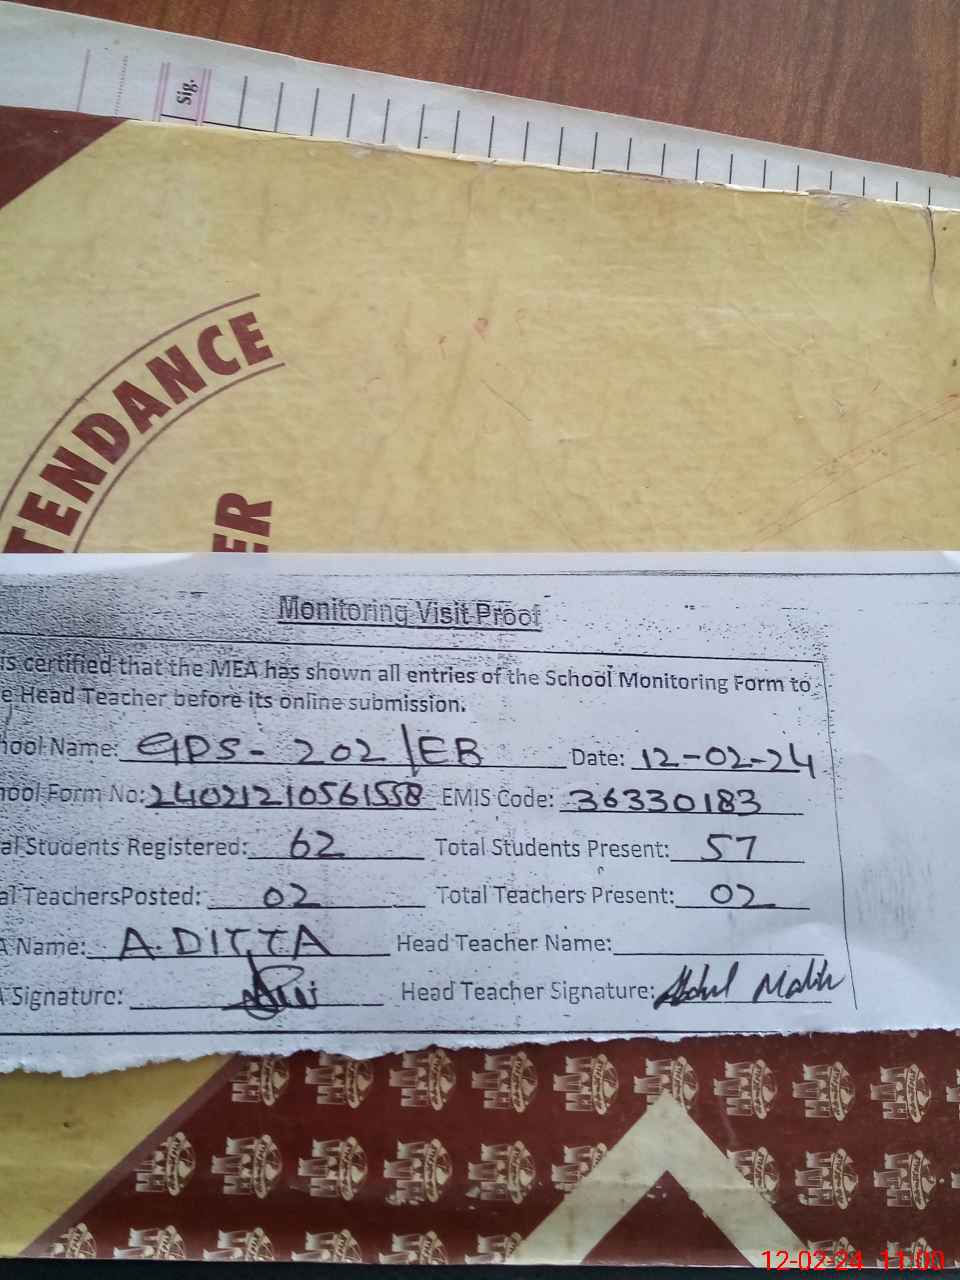 Sig.
TENDANCE
ER
Monitoring Visit Proof
is certified that the MEA has shown all entries of the School Monitoring Form to
e Head Teacher before its online submission.
hool Name: GPS- 202/EB Date: 12-02-24
hool Form No: 24021210561558 EMIS Code: 36330183
al Students Registered: 62 Total Students Present: 57
al TeachersPosted: 02 Total Teachers Present: 02
A Name: A. DITTA Head Teacher Name:
A Signature: Head Teacher Signature: Abdul Malik
12-02-24 11:00